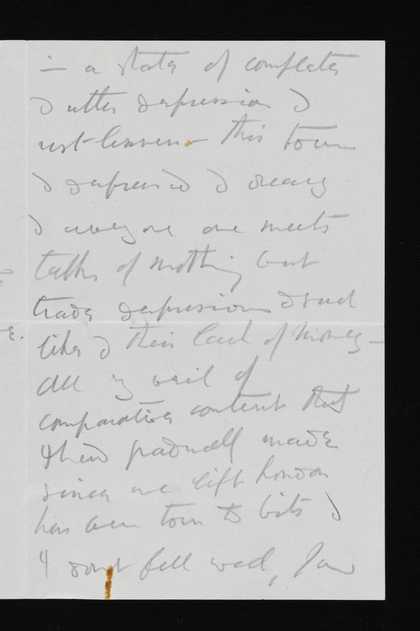 in a state of complete
& utter depression &
restlessness this town
is depressed & dreary
& everyone one meets
talks of nothing but
trade depression & such
like & their lack of money –
All my veil of
comparative content that
I had gradually made
since we left London
has been torn to bits &
I dont feel well, I am